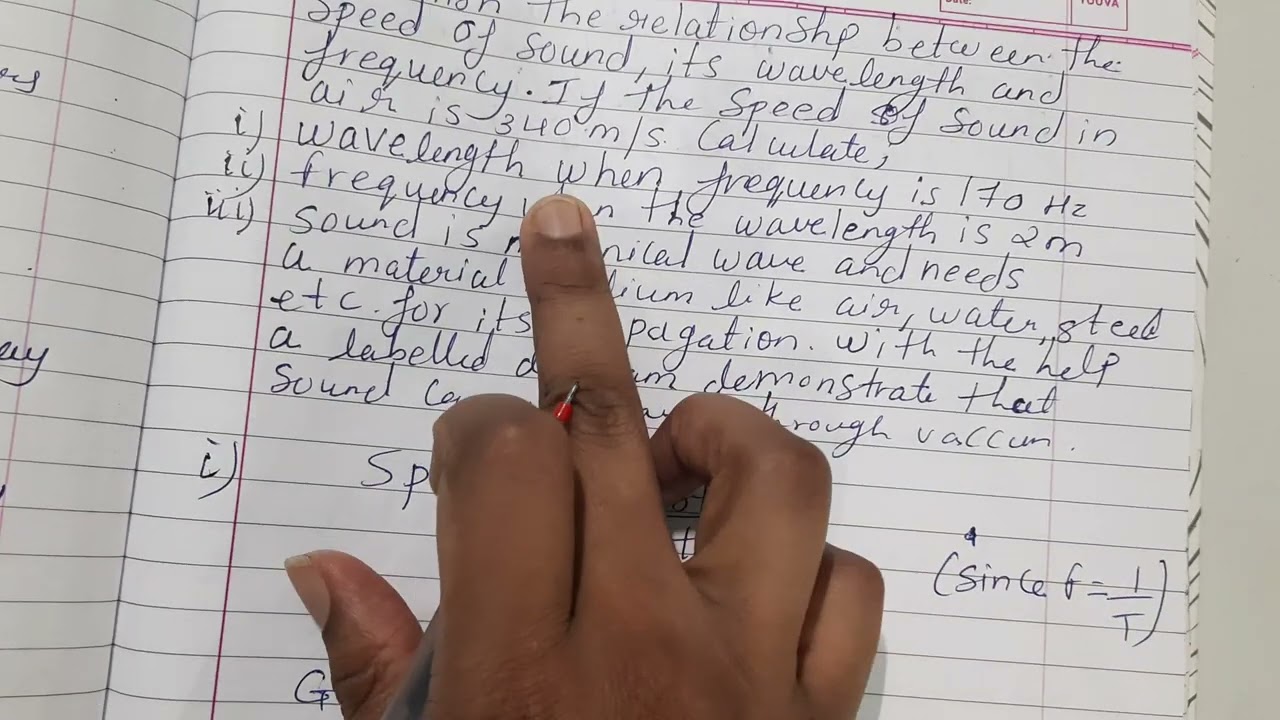 the relationshp between the
Speed of sound, its wavelength and
frequency. If the Speed of Sound in
air is 340 m/s. Calculate,
i) wavelength when frequency is 170 Hz
ii) frequency the wavelength is 2m
iii) Sound is wave and needs
a material like air, water, steel
etc. for its with the help
a labelled demonstrate that
Sound through vaccum.
i)
(since f = 1/T)